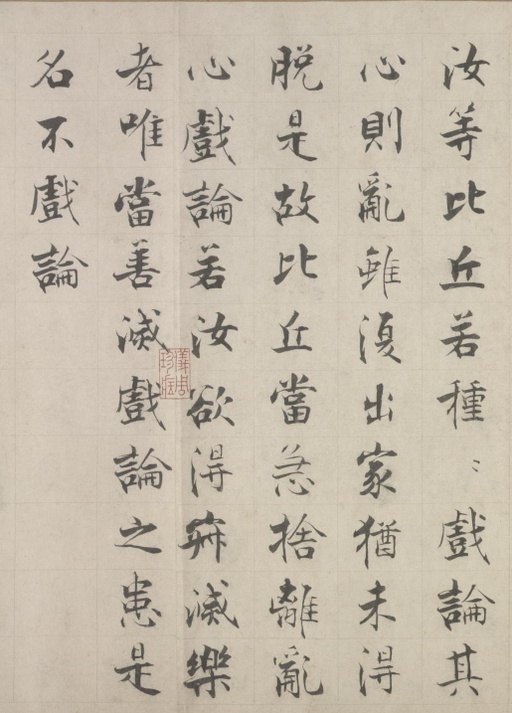 汝等比丘若種〻戲論其
心則亂雖復出家猶未得
脫是故比丘當急捨離亂
心戲論若汝欲得寂滅樂
者唯當善滅戲論之患是
名不戲論